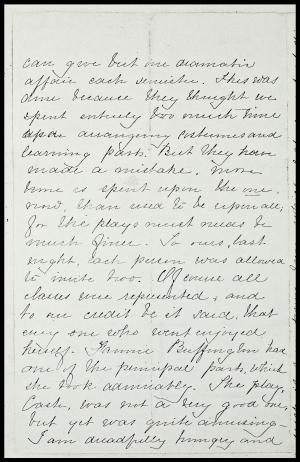 can give but one dramatic
affair each semester. This was
done because they thought we
spent entirely too much time
upon arranging costumes and
learning parts. But they have
made a mistake, more
time is spent upon the one
now, than used to be upon all,
for the plays must needs be
much finer. To ours, last
night, each person was allowed
to invite two. Of course all
classes were represented, and
to our credit be it said, that
every one who went enjoyed
herself. Fannie Buffington had
one of the principal parts, which
she took admirably. The play,
Caste, was not a very good one,
but yet was quite amusing—
I am dreadfully hungry and